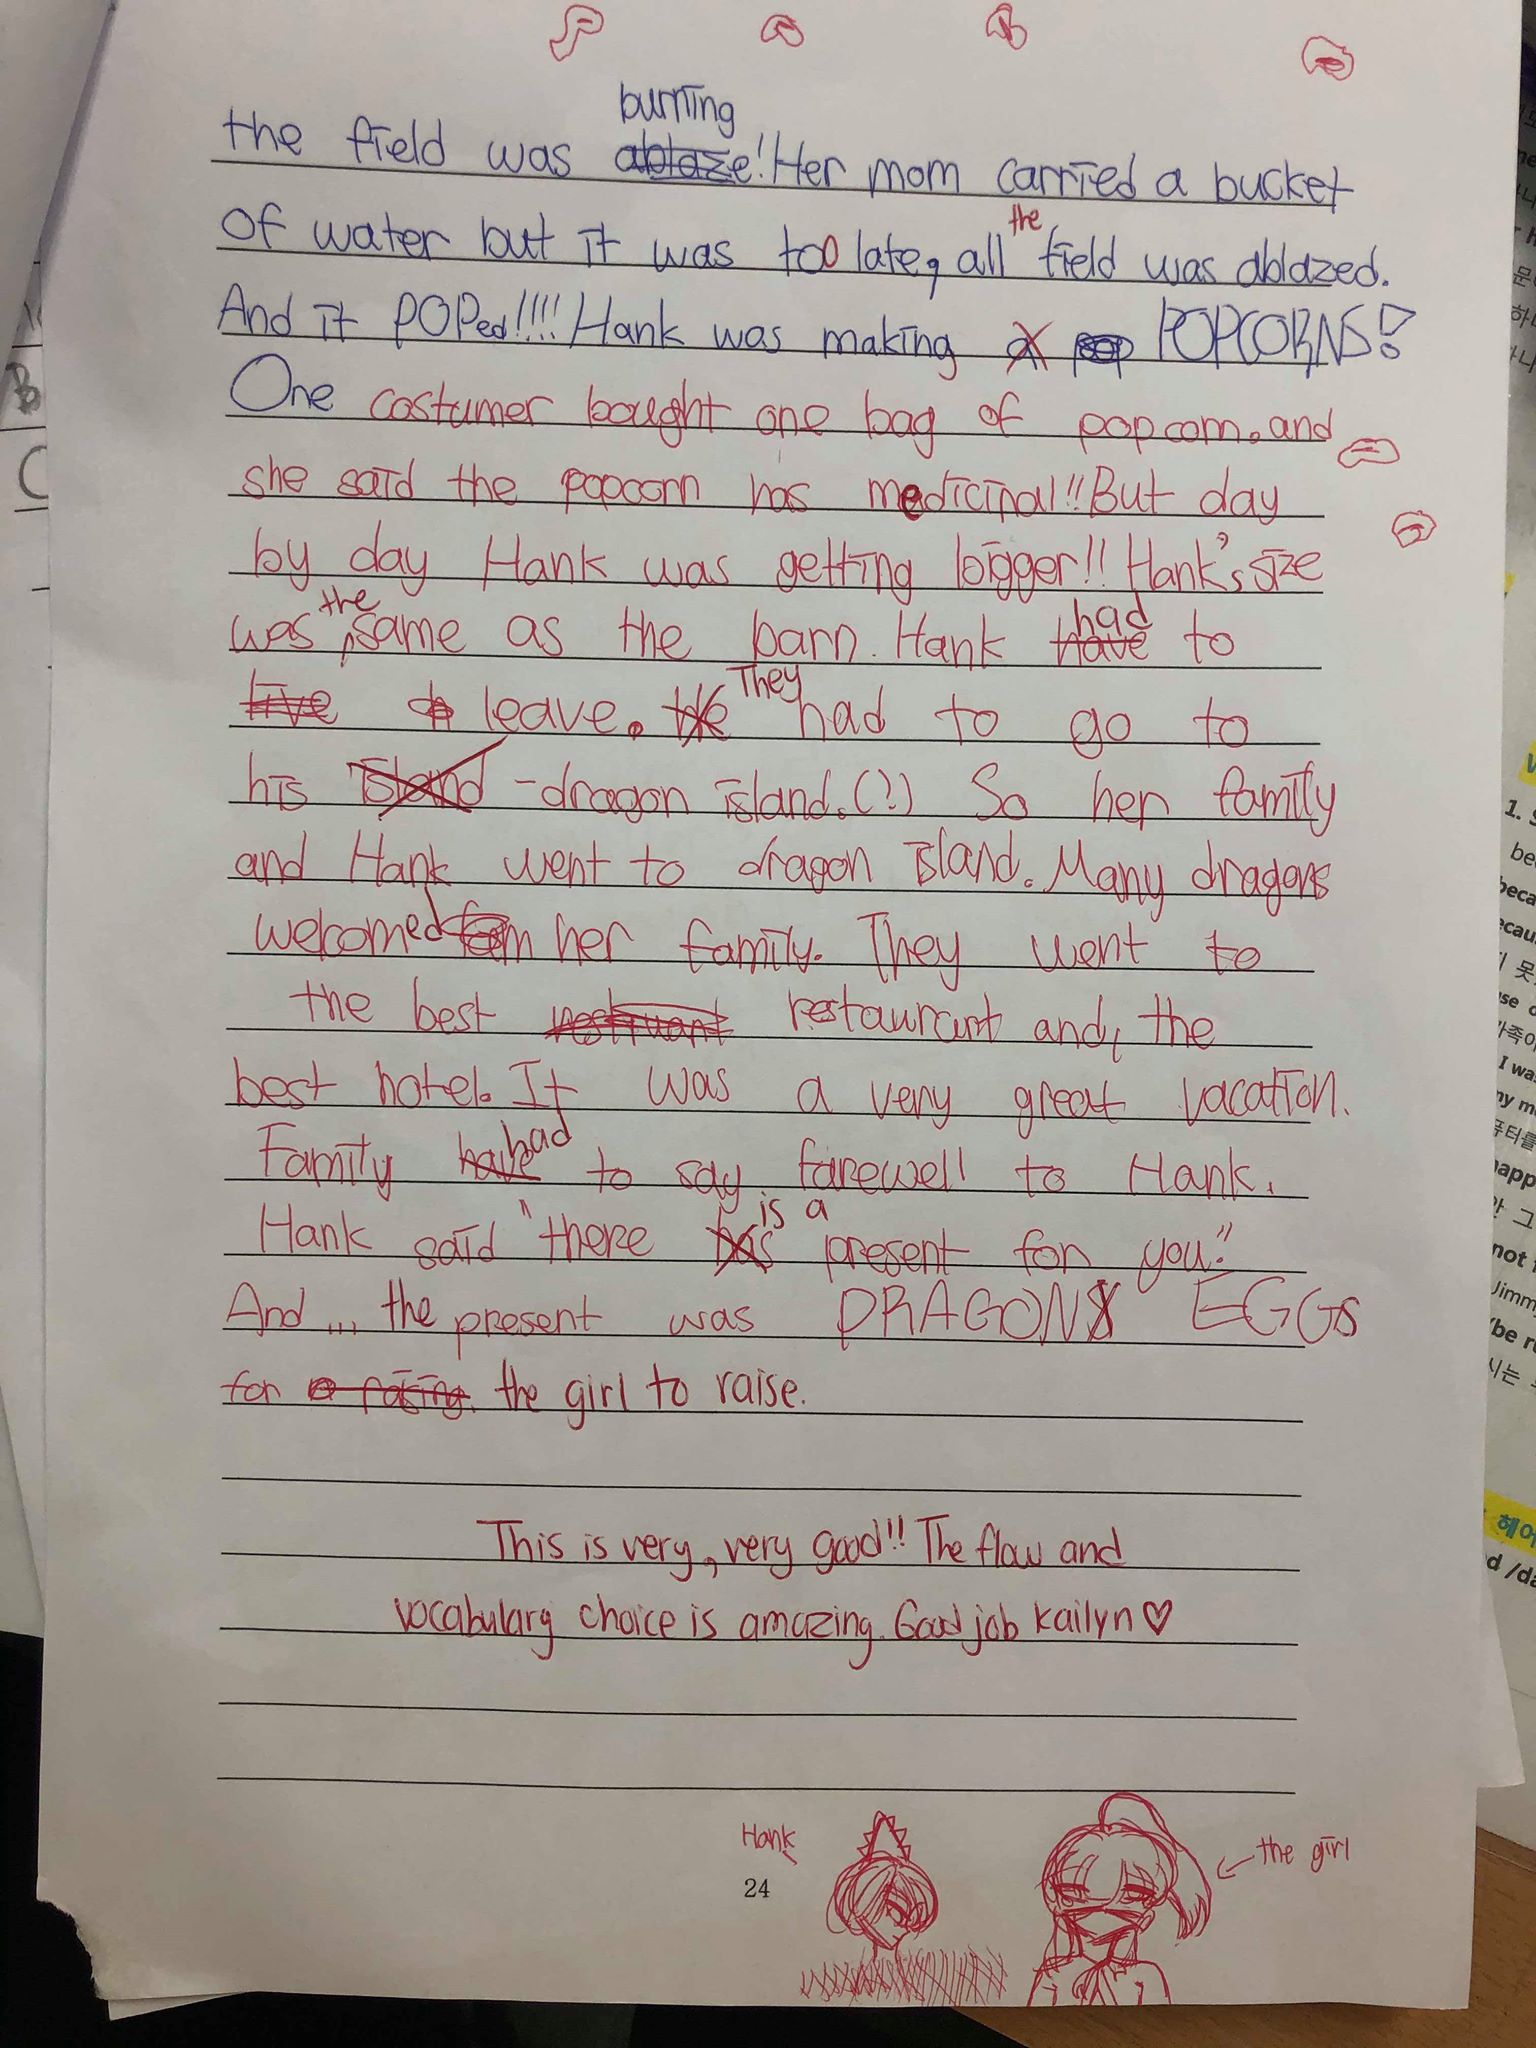 burning
the field was ablaze! Her mom carried a bucket
the
of water but it was too late, all field was ablazed.
And it POPed!!!! Hank was making a pop POPCORNS!
One costumer bought one bag of popcorn. and
she said the popcorn has medicinal!! But day
by day Hank was getting bigger!! Hank's size
the had
was same as the barn. Hank have to
They
live leave. We had to go to
his island - dragon island. (?) So her family
and Hank went to dragon island. Many dragons
welcomed her family. They went to
the best restruant restaurant and, the
best hotel. It was a very great vacation.
had
Family have to say farewell to Hank.
is a
Hank said "there has present for you."
And ... the present was DRAGONS EGGs
for a rasing. the girl to raise.
This is very, very good!! The flow and
vocabulary choice is amazing. Good job Kailyn ♡
Hank
the girl
24